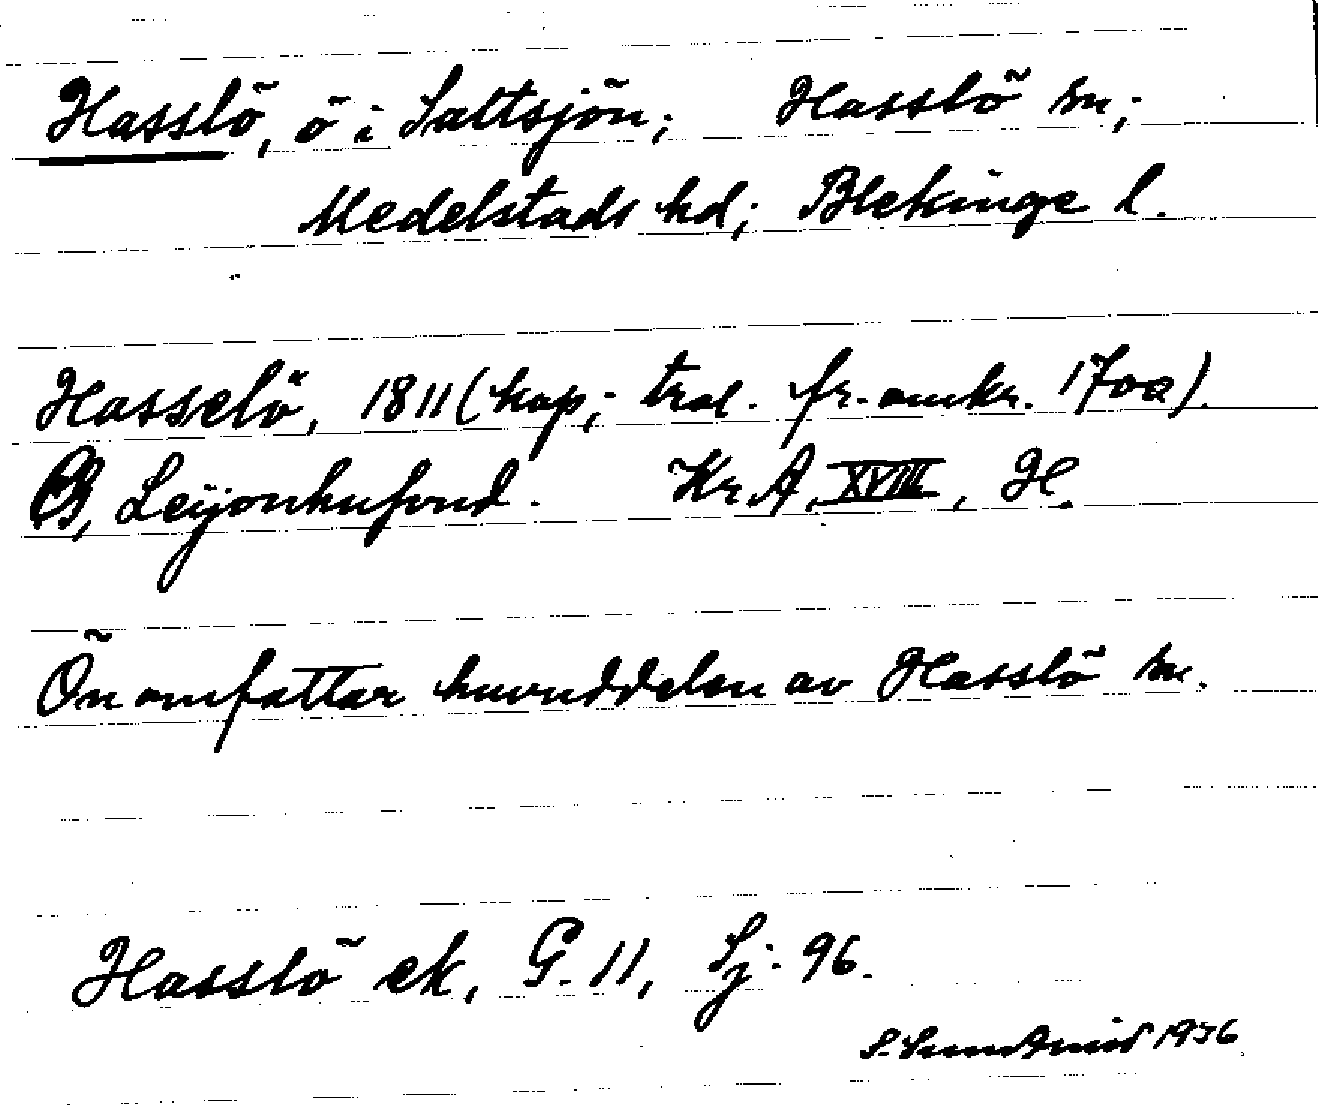 Hasslö, ö i Saltsjön; Hasslö sn;
Medelstads hd; Blekinge l.
Hasselö, 1811 (kop; trol. fr. omkr. 1700).
CB, Leijonhufvud. Kr. A, XVIII, H.
Ön omfattar huvuddelen av Hasslö sn.
Hasslö ek, G. 11, Sj: 96.
1936